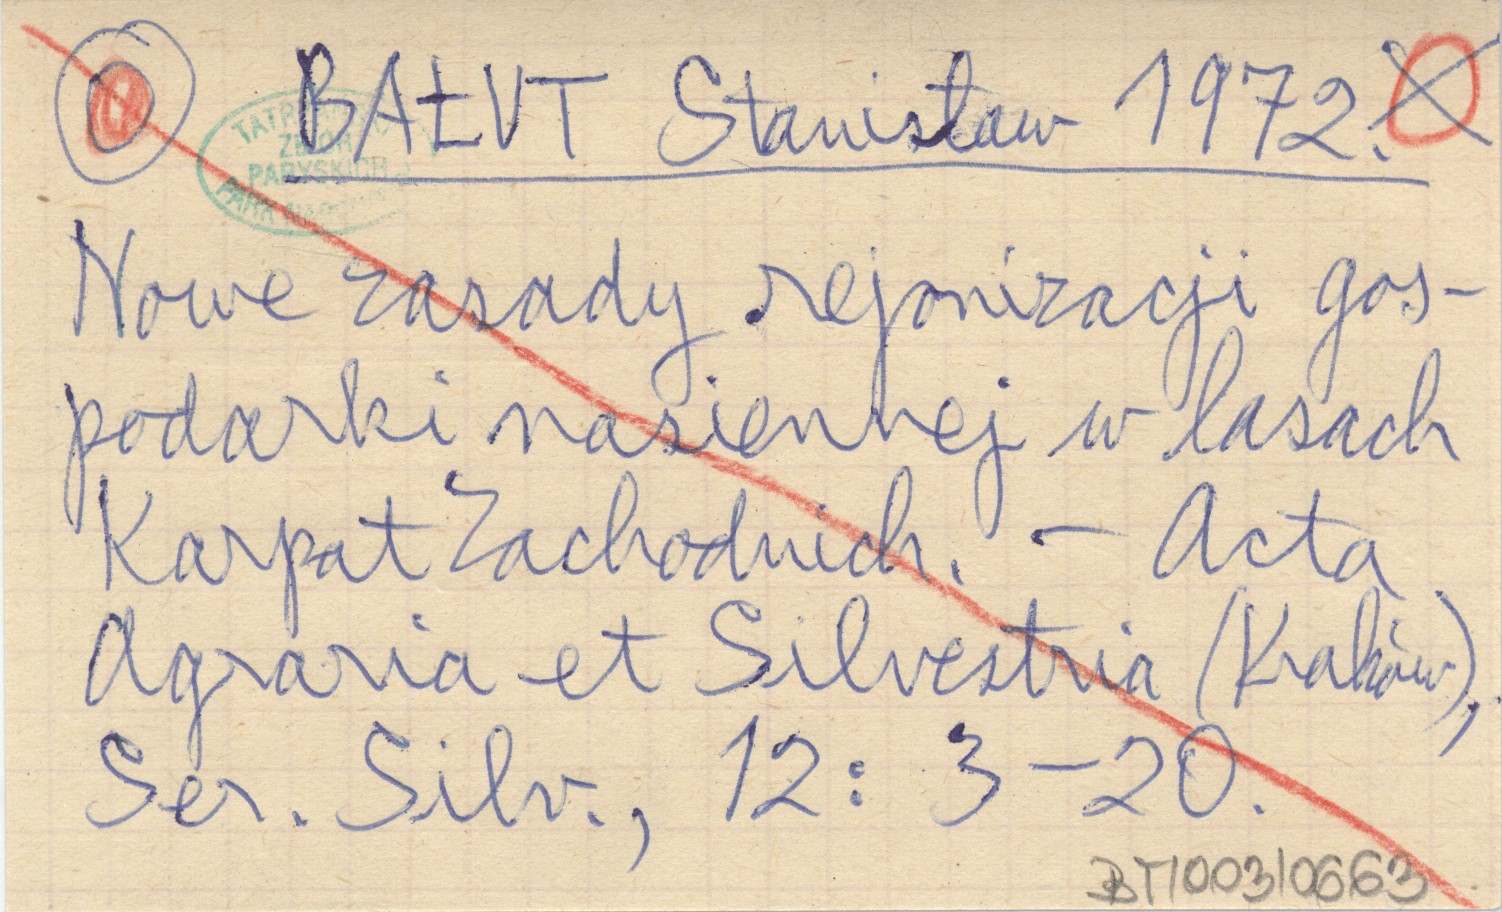 BAŁUT Stanisław 1972.
TATRZAŃSKI
ZBIORY
PARYSKICH
PARK NARODOWY
Nowe zasady rejonizacji gos-
podarki nasiennej w lasach
Karpat Zachodnich. – Acta
Agraria et Silvestria (Kraków),
Ser. Silv., 12: 3–20.
BT100310663